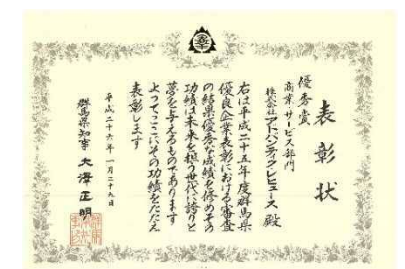 表彰状
優秀賞
商業・サービス部門
株式会社アドバンティク・レヒュース 殿
右は平成二十五年度群馬県
優良企業表彰における審査
の結果優秀な成績を修めその
功績は未来を担う世代に誇りと
夢を与えるものであります
よってここにその功績をたたえ
表彰します
平成二十六年一月二十九日
群馬県知事 大澤正明